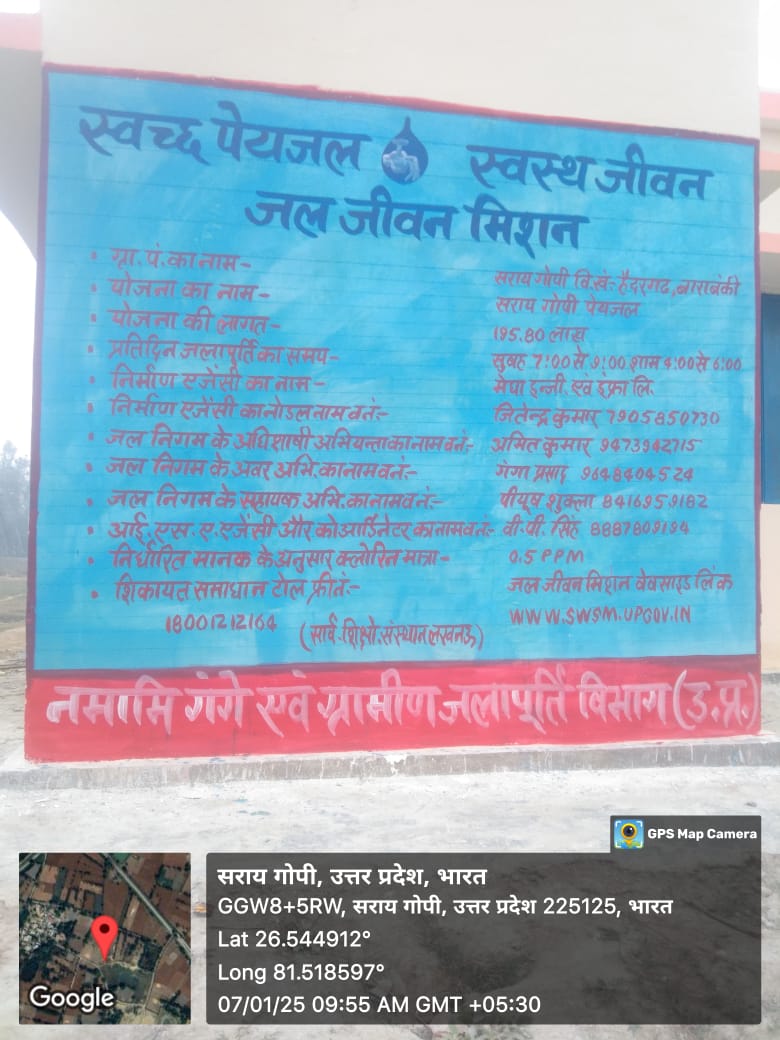 स्वच्छ पेयजल स्वस्थ जीवन
जल जीवन मिशन
• ग्रा. पं. का नाम- सराय गोपी वि.खं:- हैदरगढ, बाराबंकी
• योजना का नाम- सराय गोपी पेयजल
• योजना की लागत- 195.80 लाख
• प्रतिदिन जलापूर्ति का समय- सुबह 7:00 से 9:00 शाम 4:00 से 6:00
• निर्माण एजेंसी का नाम- मेघा इन्जी. एवं इंफ्रा लि.
• निर्माण एजेंसी का नोडल नाम व नं:- जितेन्द्र कुमार 7905850730
• जल निगम के अधिशाषी अभियन्ता का नाम व नं:- अमित कुमार 9473942715
• जल निगम के अवर अभि. का नाम व नं:- गंगा प्रसाद 9648404524
• जल निगम के सहायक अभि. का नाम व नं:- पीयूष शुक्ला 8416959182
• आई. एस. ए. एजेंसी और कोआर्डिनेटर का नाम व नं:- वी. पी. सिंह 8887809194
• निर्धारित मानक के अनुसार क्लोरिन मात्रा- 0.5 PPM
• शिकायत समाधान टोल फ्री नं:- जल जीवन मिशन वेवसाइड लिंक
18001212164 (सार्व. शिक्षो. संस्थान लखनऊ) WWW.SWSM.UPGOV.IN
नमामि गंगे एवं ग्रामीण जलापूर्ति विभाग (उ.प्र.)
GPS Map Camera
सराय गोपी, उत्तर प्रदेश, भारत
GGW8+5RW, सराय गोपी, उत्तर प्रदेश 225125, भारत
Lat 26.544912°
Long 81.518597°
07/01/25 09:55 AM GMT +05:30
Google